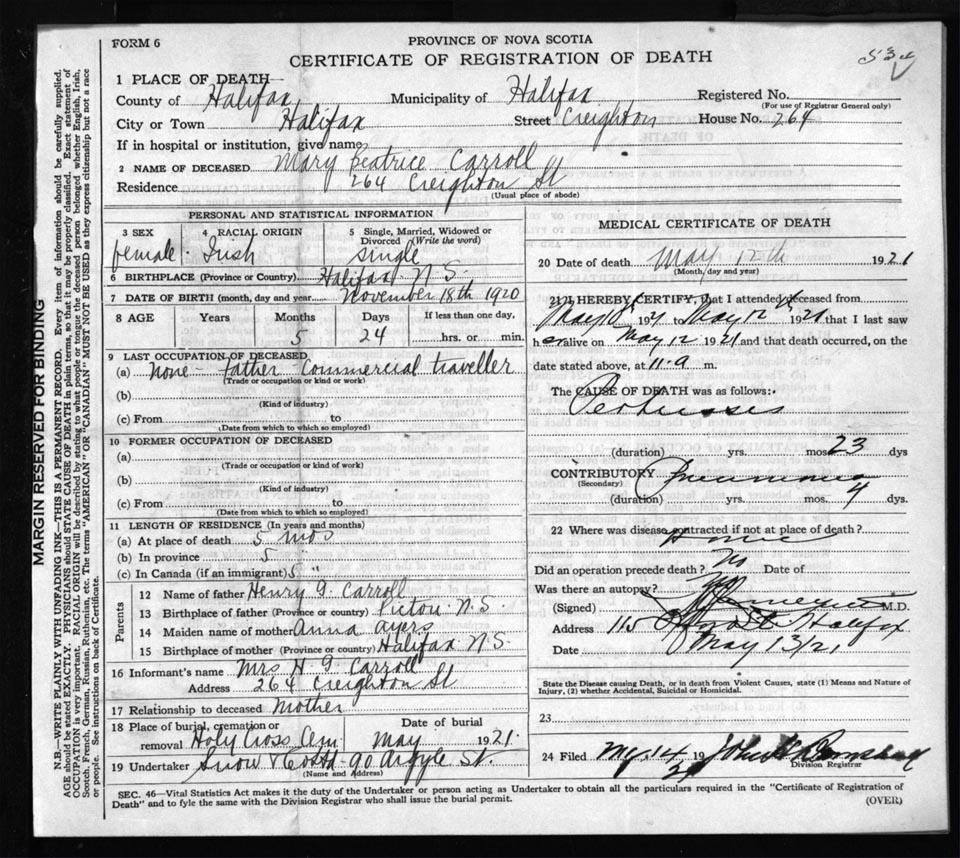 FORM 6
PROVINCE OF NOVA SCOTIA
CERTIFICATE OF REGISTRATION OF DEATH
1 PLACE OF DEATH
County of Halifax Municipality of Halifax Registered No.
(For use of Registrar General only)
City or Town Halifax Street Creighton House No. 264
If in hospital or institution, give name
2 NAME OF DECEASED Mary Beatrice Carroll
Residence 264 Creighton St
(Usual place of abode)
PERSONAL AND STATISTICAL INFORMATION
3 SEX 4 RACIAL ORIGIN 5 Single, Married, Widowed or Divorced (Write the word)
female Irish single
6 BIRTHPLACE (Province or Country) Halifax N.S.
7 DATE OF BIRTH (month, day and year) November 18th 1920
8 AGE Years Months Days If less than one day,
5 24 hrs. or min.
9 LAST OCCUPATION OF DECEASED
(a) None - father - Commercial traveller
(Trade or occupation or kind of work)
(b)
(Kind of industry)
(c) From to
(Date from which to which so employed)
10 FORMER OCCUPATION OF DECEASED
(a)
(Trade or occupation or kind of work)
(b)
(Kind of industry)
(c) From to
(Date from which to which so employed)
11 LENGTH OF RESIDENCE (In years and months)
(a) At place of death 5 mos
(b) In province 5 "
(c) In Canada (if an immigrant) 5 "
Parents
12 Name of father Henry G. Carroll
13 Birthplace of father (Province or country) Pictou N.S
14 Maiden name of mother Anna Ayers
15 Birthplace of mother (Province or country) Halifax N.S.
16 Informant's name Mrs H. G. Carroll
Address 264 Creighton St
17 Relationship to deceased Mother
18 Place of burial, cremation or removal Holy Cross Cem Date of burial May 1921.
19 Undertaker Snow & Co 90 Argyle St.
(Name and Address)
MEDICAL CERTIFICATE OF DEATH
20 Date of death May 12th 1921
(Month, day and year)
21 I HEREBY CERTIFY, that I attended deceased from
May 1921 to May 12th 1921 that I last saw
her alive on May 12 1921 and that death occurred, on the
date stated above, at 11.9 m.
The CAUSE OF DEATH was as follows:
Pertussis
(duration) yrs. mos. 23 dys
CONTRIBUTORY Pneumonia
(Secondary)
(duration) yrs. mos. 4 dys.
22 Where was disease contracted if not at place of death?
Home
Did an operation precede death? No Date of
Was there an autopsy? No
(Signed) M.D.
Address 115 Halifax
Date May 13/21
State the Disease causing Death, or in death from Violent Causes, state (1) Means and Nature of Injury, (2) whether Accidental, Suicidal or Homicidal.
23
24 Filed 14 19 21
Division Registrar
SEC. 46—Vital Statistics Act makes it the duty of the Undertaker or person acting as Undertaker to obtain all the particulars required in the "Certificate of Registration of
Death" and to fyle the same with the Division Registrar who shall issue the burial permit.
(OVER)
MARGIN RESERVED FOR BINDING
N.B.—WRITE PLAINLY WITH UNFADING INK—THIS IS A PERMANENT RECORD. Every item of information should be carefully supplied.
AGE should be stated EXACTLY. PHYSICIANS should STATE CAUSE OF DEATH in plain terms, so that it may be properly classified. Exact statement of
OCCUPATION is very important. RACIAL ORIGIN will be described by stating to what people or tongue the deceased person belonged, whether English, Irish,
Scotch, French, German, Russian, Ruthenian, etc. The terms "AMERICAN" OR "CANADIAN" MUST NOT BE USED as they express citizenship but not a race
or people. See instructions on back of Certificate.